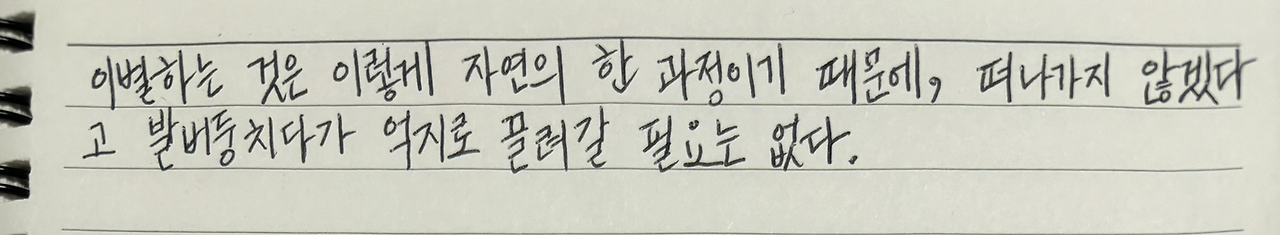 이별하는 것은 이렇게 자연의 한 과정이기 때문에, 떠나가지 않겠다
고 발버둥치다가 억지로 끌려갈 필요는 없다.